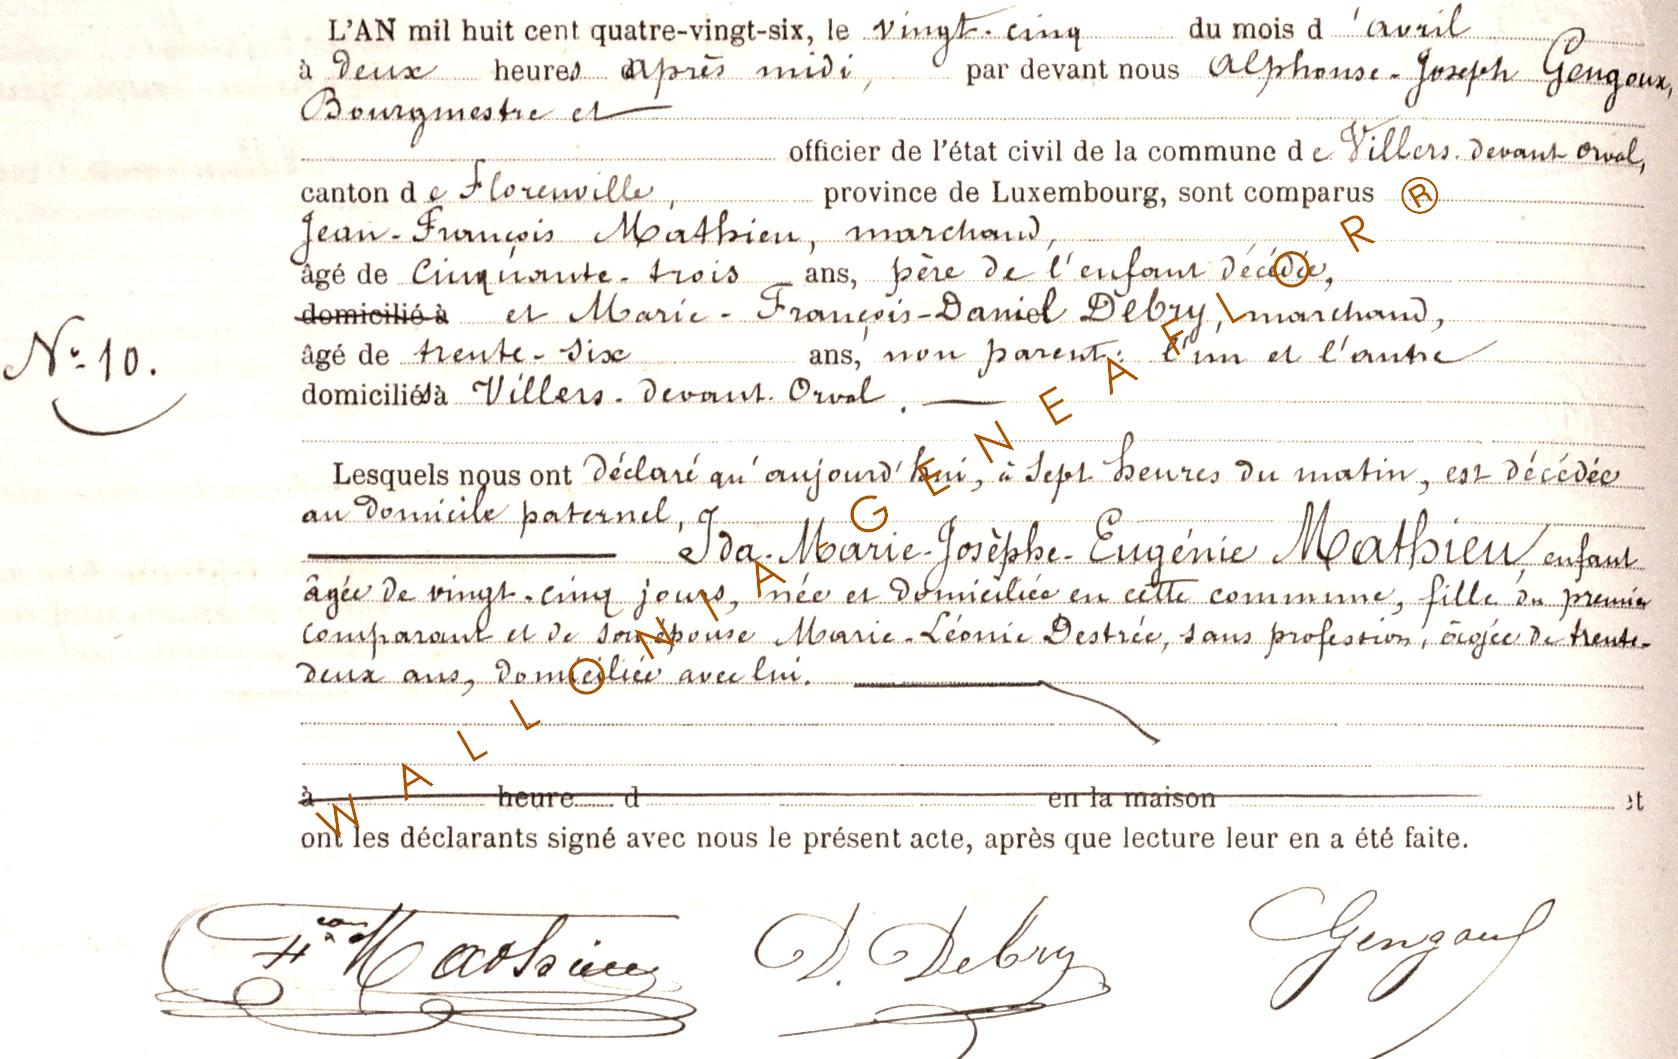 L'AN mil huit cent quatre-vingt-six, le vingt-cinq du mois d'avril
à deux heures après midi, par devant nous Alphonse-Joseph Gengoux,
Bourgmestre et
officier de l'état civil de la commune de Villers-devant Orval,
canton de Florenville, province de Luxembourg, sont comparus
Jean-François Mathieu, marchand,
âgé de cinquante-trois ans, père de l'enfant décédée,
domicilié à et Marie-François-Daniel Debry, marchand,
Nº 10.
âgé de trente-six ans, non parent: l'un et l'autre
domiciliés à Villers-devant-Orval.
Lesquels nous ont déclaré qu'aujourd'hui, à sept heures du matin, est décédée
au domicile paternel,
Ida-Marie-Josèphe-Eugénie Mathieu, enfant
âgée de vingt-cinq jours, née et domiciliée en cette commune, fille du premier
comparant et de son épouse Marie-Léonie Destrée, sans profession, âgée de trente-
deux ans, domiciliée avec lui.
à heure d en la maison et
ont les déclarants signé avec nous le présent acte, après que lecture leur en a été faite.
Mathieu D. Debry Gengoux
WALLONIA GENEAFLOR ®